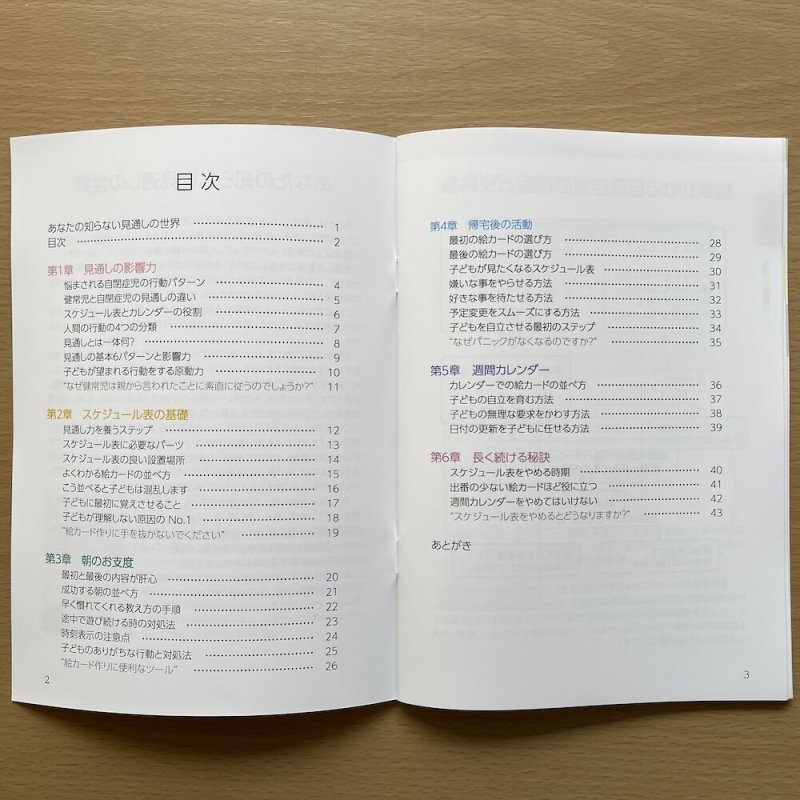 目次
あなたの知らない見通しの世界 ……… 1
目次 ……… 2
第1章 見通しの影響力
悩まされる自閉症児の行動パターン ……… 4
健常児と自閉症児の見通しの違い ……… 5
スケジュール表とカレンダーの役割 ……… 6
人間の行動の4つの分類 ……… 7
見通しとは一体何? ……… 8
見通しの基本6パターンと影響力 ……… 9
子どもが望まれる行動をする原動力 ……… 10
"なぜ健常児は親から言われたことに素直に従うのでしょうか?" 11
第2章 スケジュール表の基礎
見通し力を養うステップ ……… 12
スケジュール表に必要なパーツ ……… 13
スケジュール表の良い設置場所 ……… 14
よくわかる絵カードの並べ方 ……… 15
こう並べると子どもは混乱します ……… 16
子どもに最初に覚えさせること ……… 17
子どもが理解しない原因の No.1 ……… 18
"絵カード作りに手を抜かないでください" ……… 19
第3章 朝のお支度
最初と最後の内容が肝心 ……… 20
成功する朝の並べ方 ……… 21
早く慣れてくれる教え方の手順 ……… 22
途中で遊び続ける時の対処法 ……… 23
時刻表示の注意点 ……… 24
子どものありがちな行動と対処法 ……… 25
"絵カード作りに便利なツール" ……… 26
2
第4章 帰宅後の活動
最初の絵カードの選び方 ……… 28
最後の絵カードの選び方 ……… 29
子どもが見たくなるスケジュール表 ……… 30
嫌いな事をやらせる方法 ……… 31
好きな事を待たせる方法 ……… 32
予定変更をスムーズにする方法 ……… 33
子どもを自立させる最初のステップ ……… 34
"なぜパニックがなくなるのですか?" ……… 35
第5章 週間カレンダー
カレンダーでの絵カードの並べ方 ……… 36
子どもの自立を育む方法 ……… 37
子どもの無理な要求をかわす方法 ……… 38
日付の更新を子どもに任せる方法 ……… 39
第6章 長く続ける秘訣
スケジュール表をやめる時期 ……… 40
出番の少ない絵カードほど役に立つ ……… 41
週間カレンダーをやめてはいけない ……… 42
"スケジュール表をやめるとどうなりますか?" ……… 43
あとがき
3